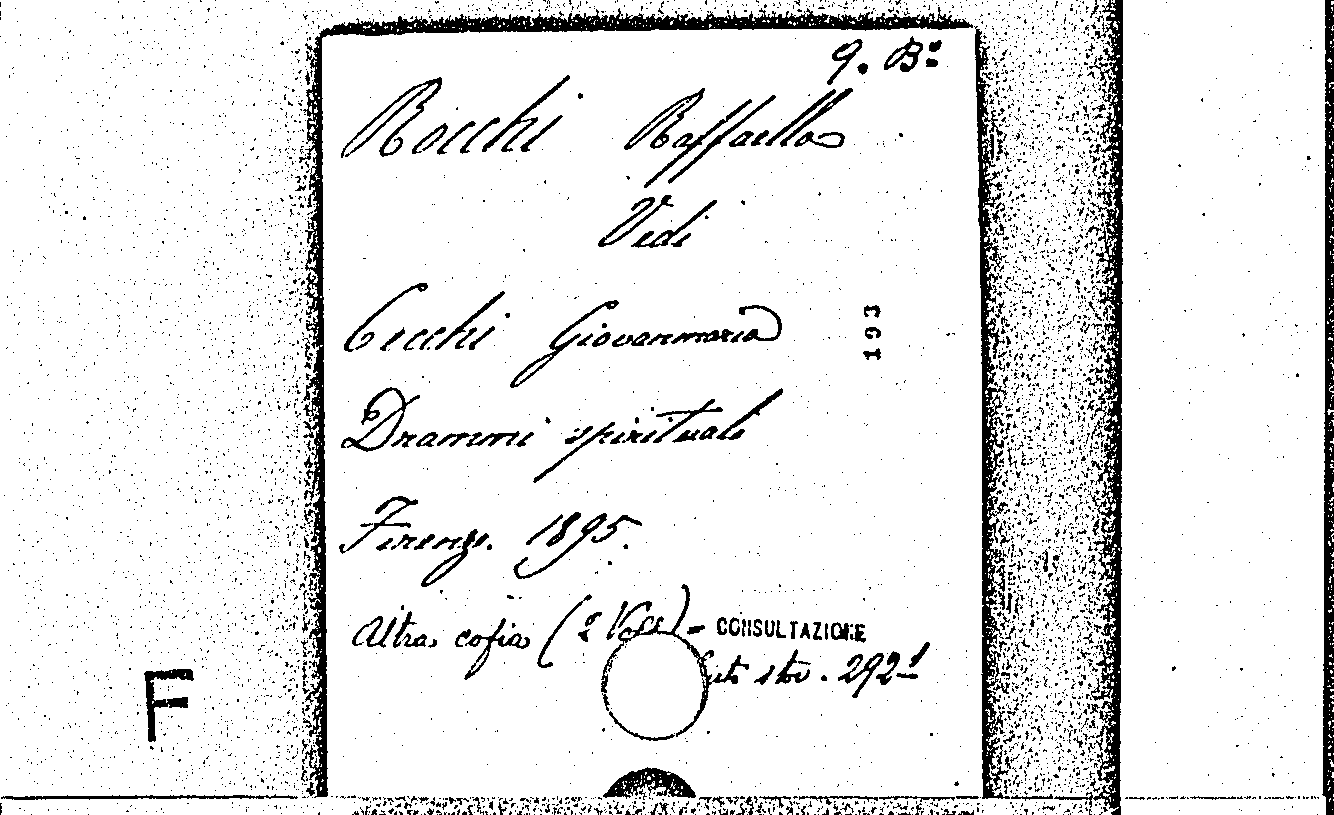 9. B:
Rocchi Raffaello
Vedi
Cecchi Giovanmaria
193
Drammi spirituali
Firenze. 1895.
Altra copia (2 Voll) - CONSULTAZIONE
292-1
F